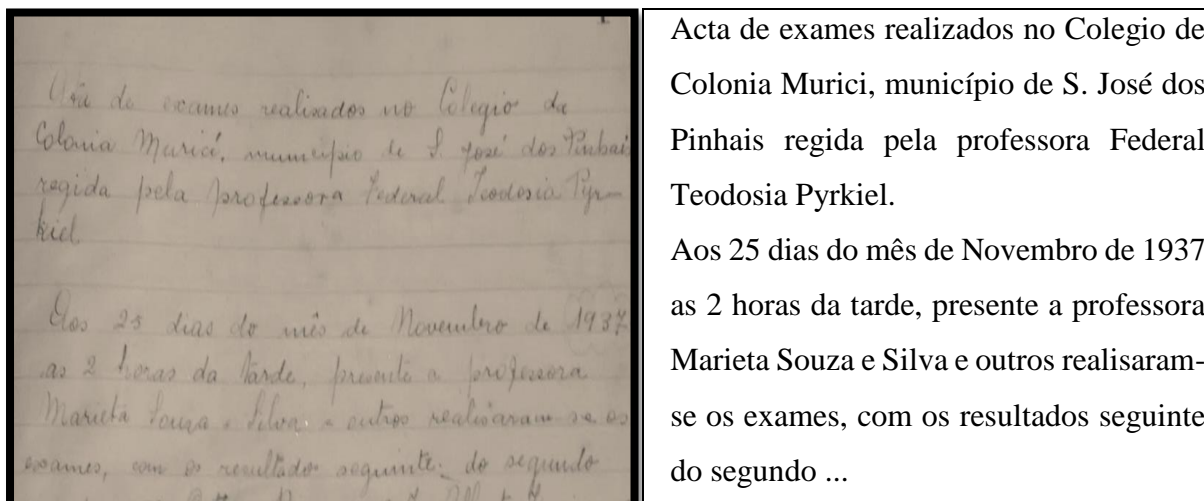 Ata de exames realizados no Colegio da
Colonia Murici, municipio de S. José dos Pinhais
regida pela professora Federal Teodosia Pyr-
kiel
Aos 25 dias do mês de Novembro de 1937
as 2 horas da tarde, presente a professora
Marieta Souza e Silva e outros realisaram se os
exames, com os resultados seguinte: do segundo
Acta de exames realizados no Colegio de
Colonia Murici, município de S. José dos
Pinhais regida pela professora Federal
Teodosia Pyrkiel.
Aos 25 dias do mês de Novembro de 1937
as 2 horas da tarde, presente a professora
Marieta Souza e Silva e outros realisaram-
se os exames, com os resultados seguinte
do segundo ...